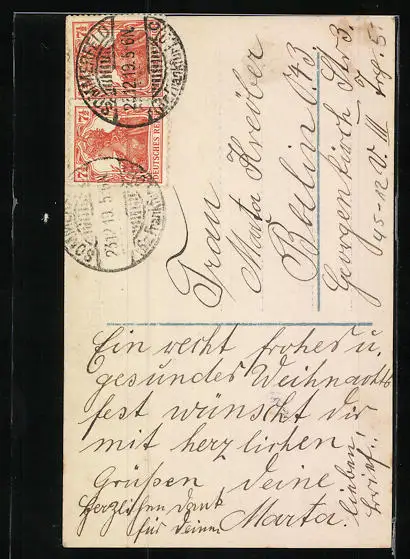 SOMMERFELD
23.12.19.5-6N.
7½
7½
DEUTSCHES REICH
23.12.19.5-6N.
Frau
Marta Kreiber
Berlin
Georgenkirch Str 3
Ein recht frohes u.
gesundes Weihnachts
fest wünscht dir
mit herzlichen
Grüßen deine
Marta.
Herzlichen Dank
für deinen
lieben
Brief.